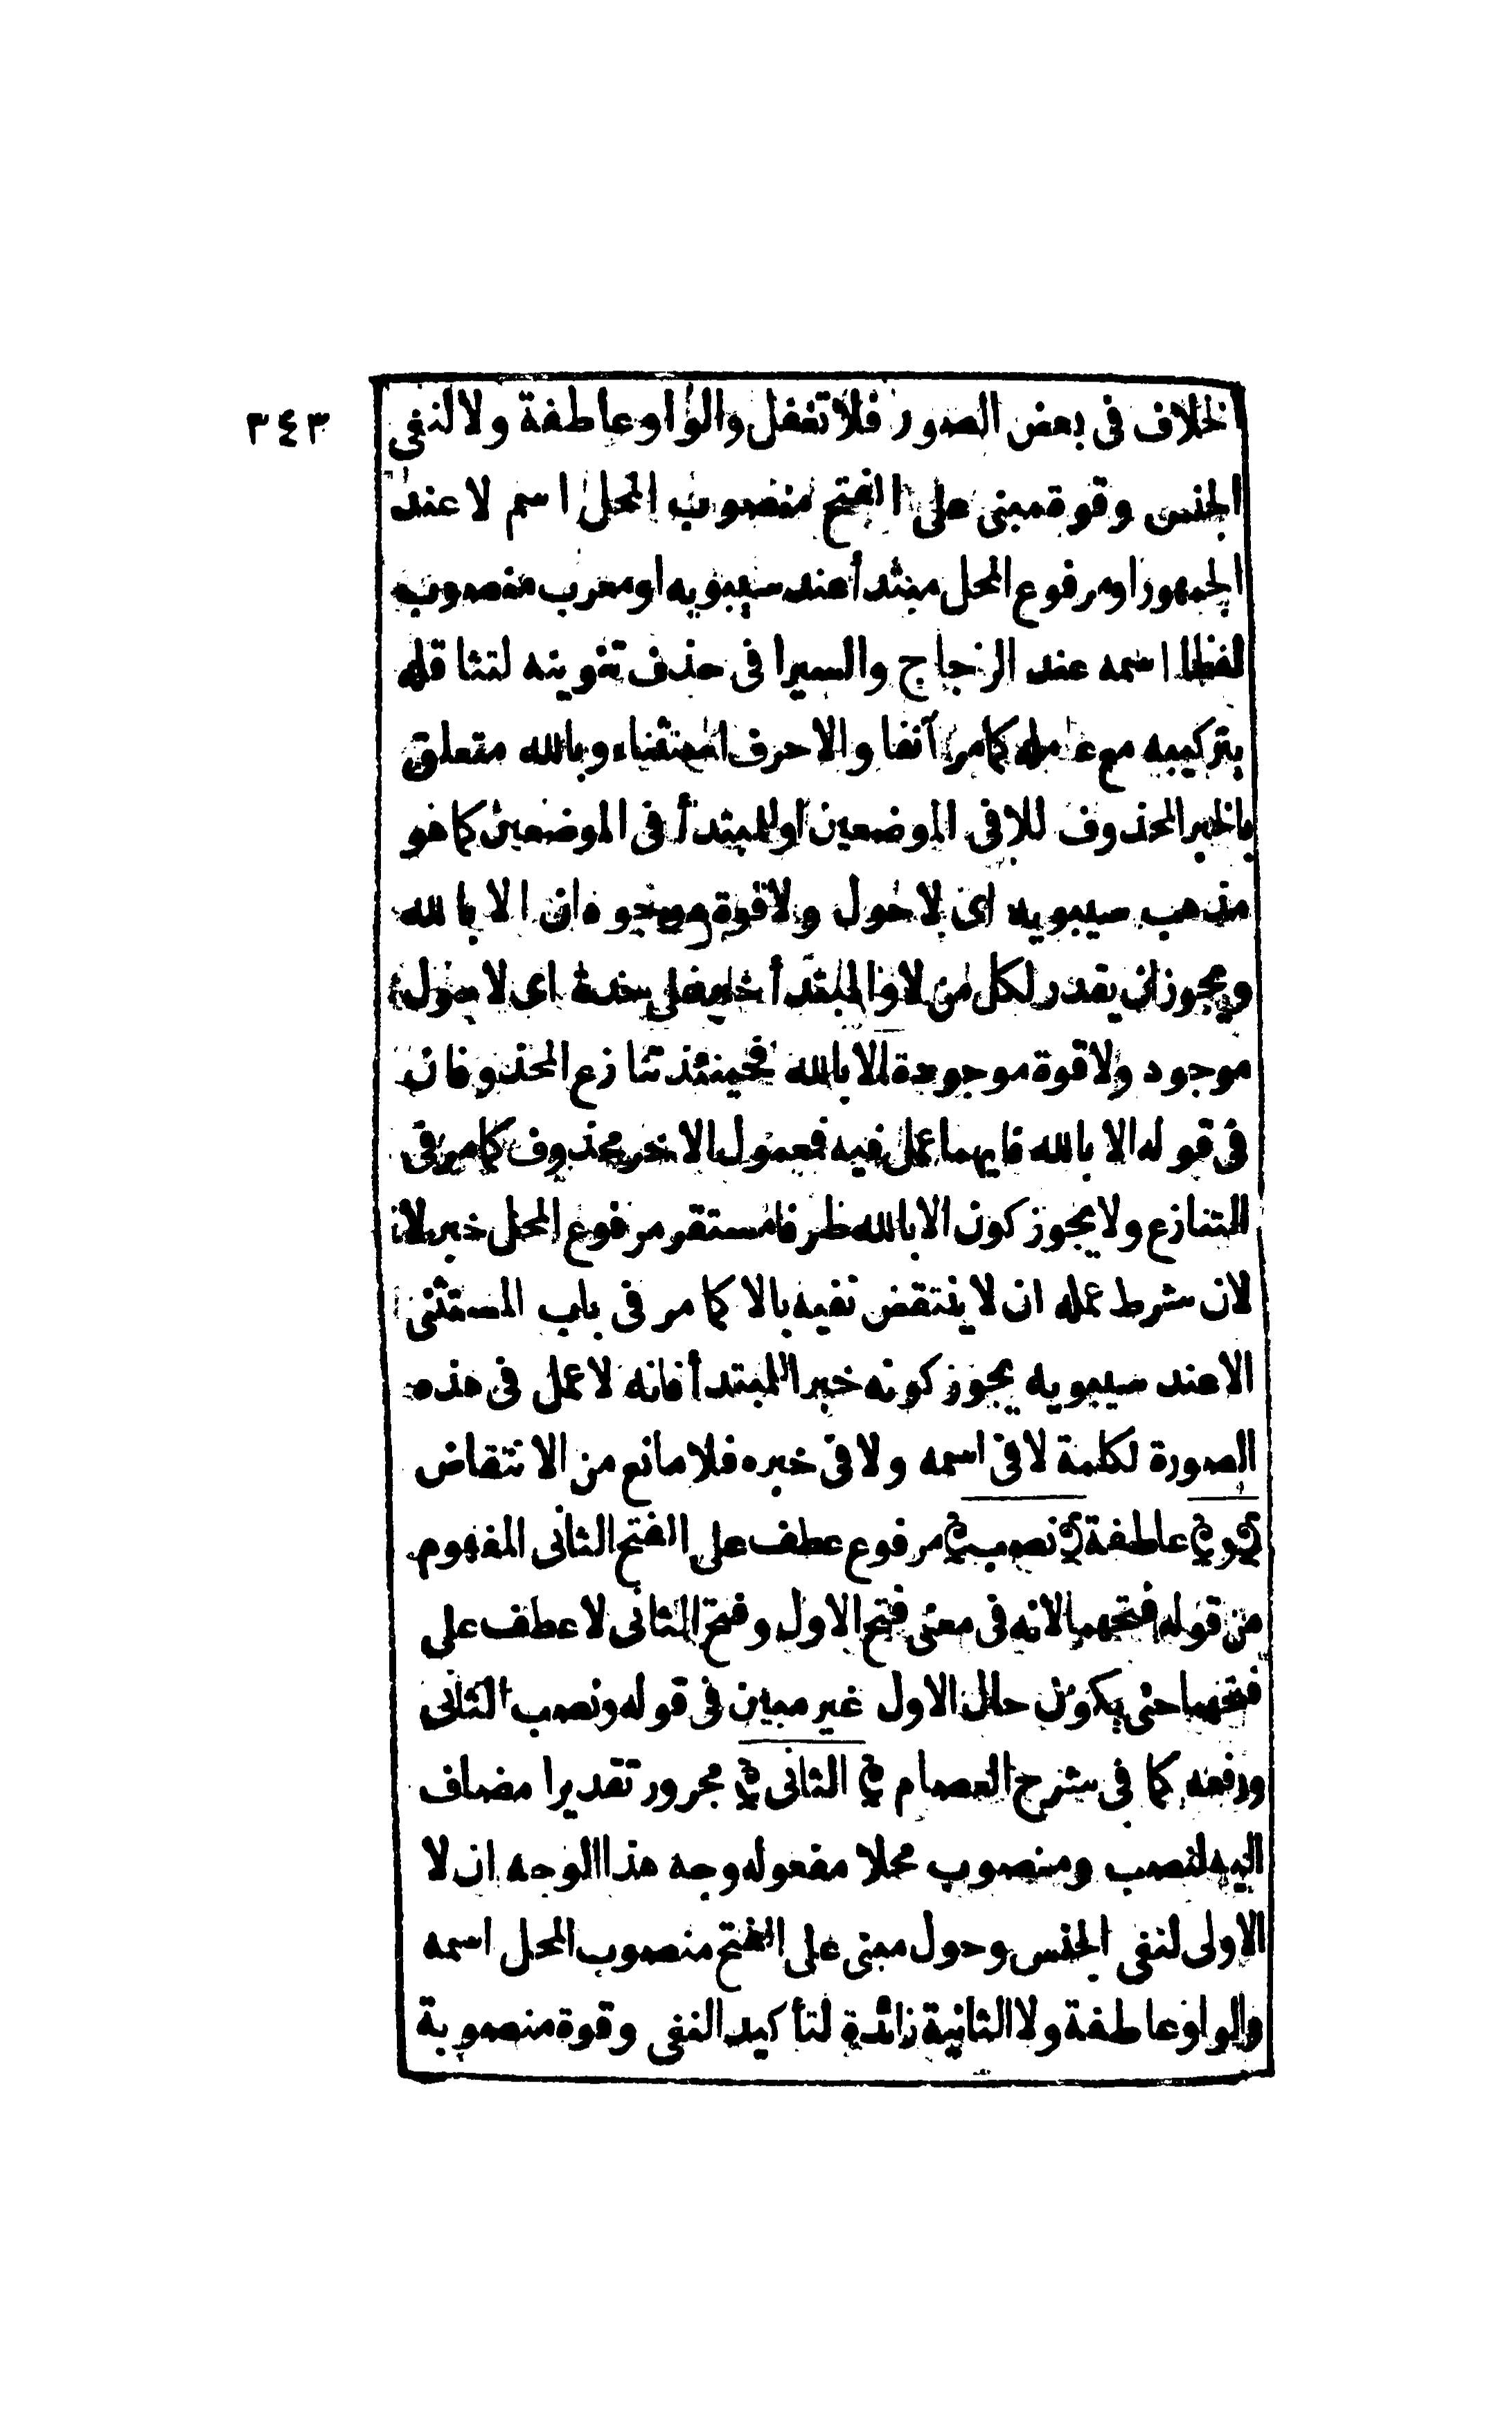 ٣٤٣
الخلاف فى بعض الصور فلا تغفل والواو عاطفة ولا لنفى
الجنس وقوة مبنى على الفتح منصوب المحل اسم لا عند
الجمهور او مرفوع المحل مبتدأ عند سيبويه او معرب منصوب
لفظا اسمه عند الزجاج والسيرافى حذف تنوينه لتثاقله
بتركيبه مع عامله كما مر آنفا والا حرف استثناء وبالله متعلق
بالخبر المحذوف للا فى الموضعين او للمبتدأ فى الموضعين كما هو
مذهب سيبويه اى لا حول ولا قوة موجودان الا بالله
ويجوز ان يقدر لكل من لا والمبتدأ خبر على حدة اى لا حول
موجود ولا قوة موجودة الا بالله فحينئذ تنازع المحذوفان
فى قوله الا بالله فايهما عمل فيه فمعمول الاخر محذوف كما مر فى
التنازع ولا يجوز كون الا بالله ظرفا مستقر مرفوع المحل خبر لا
لان شرط عمله ان لا ينتقض نفيه بالا كما مر فى باب المستثنى
الا عند سيبويه يجوز كونه خبر المبتدأ فانه لا عمل فى هذه
الصورة لكلمة لا فى اسمه ولا فى خبره فلا مانع من الانتقاض
﴿و﴾ عاطفة ﴿نصب﴾ مرفوع عطف على الفتح الثانى المفهوم
من قوله فتحهما لانه فى معنى فتح الاول وفتح الثانى لا عطف على
فتحهما حتى يكون حال الاول غير مبين فى قوله ونصب الثانى
ورفعه كما فى شرح العصام ﴿الثانى﴾ مجرور تقديرا مضاف
اليه لنصب ومنصوب محلا مفعوله وجه هذا الوجه ان لا
الاولى لنفى الجنس وحول مبنى على الفتح منصوب المحل اسمه
والواو عاطفة ولا الثانية زائدة لتأكيد النفى وقوة منصوبة